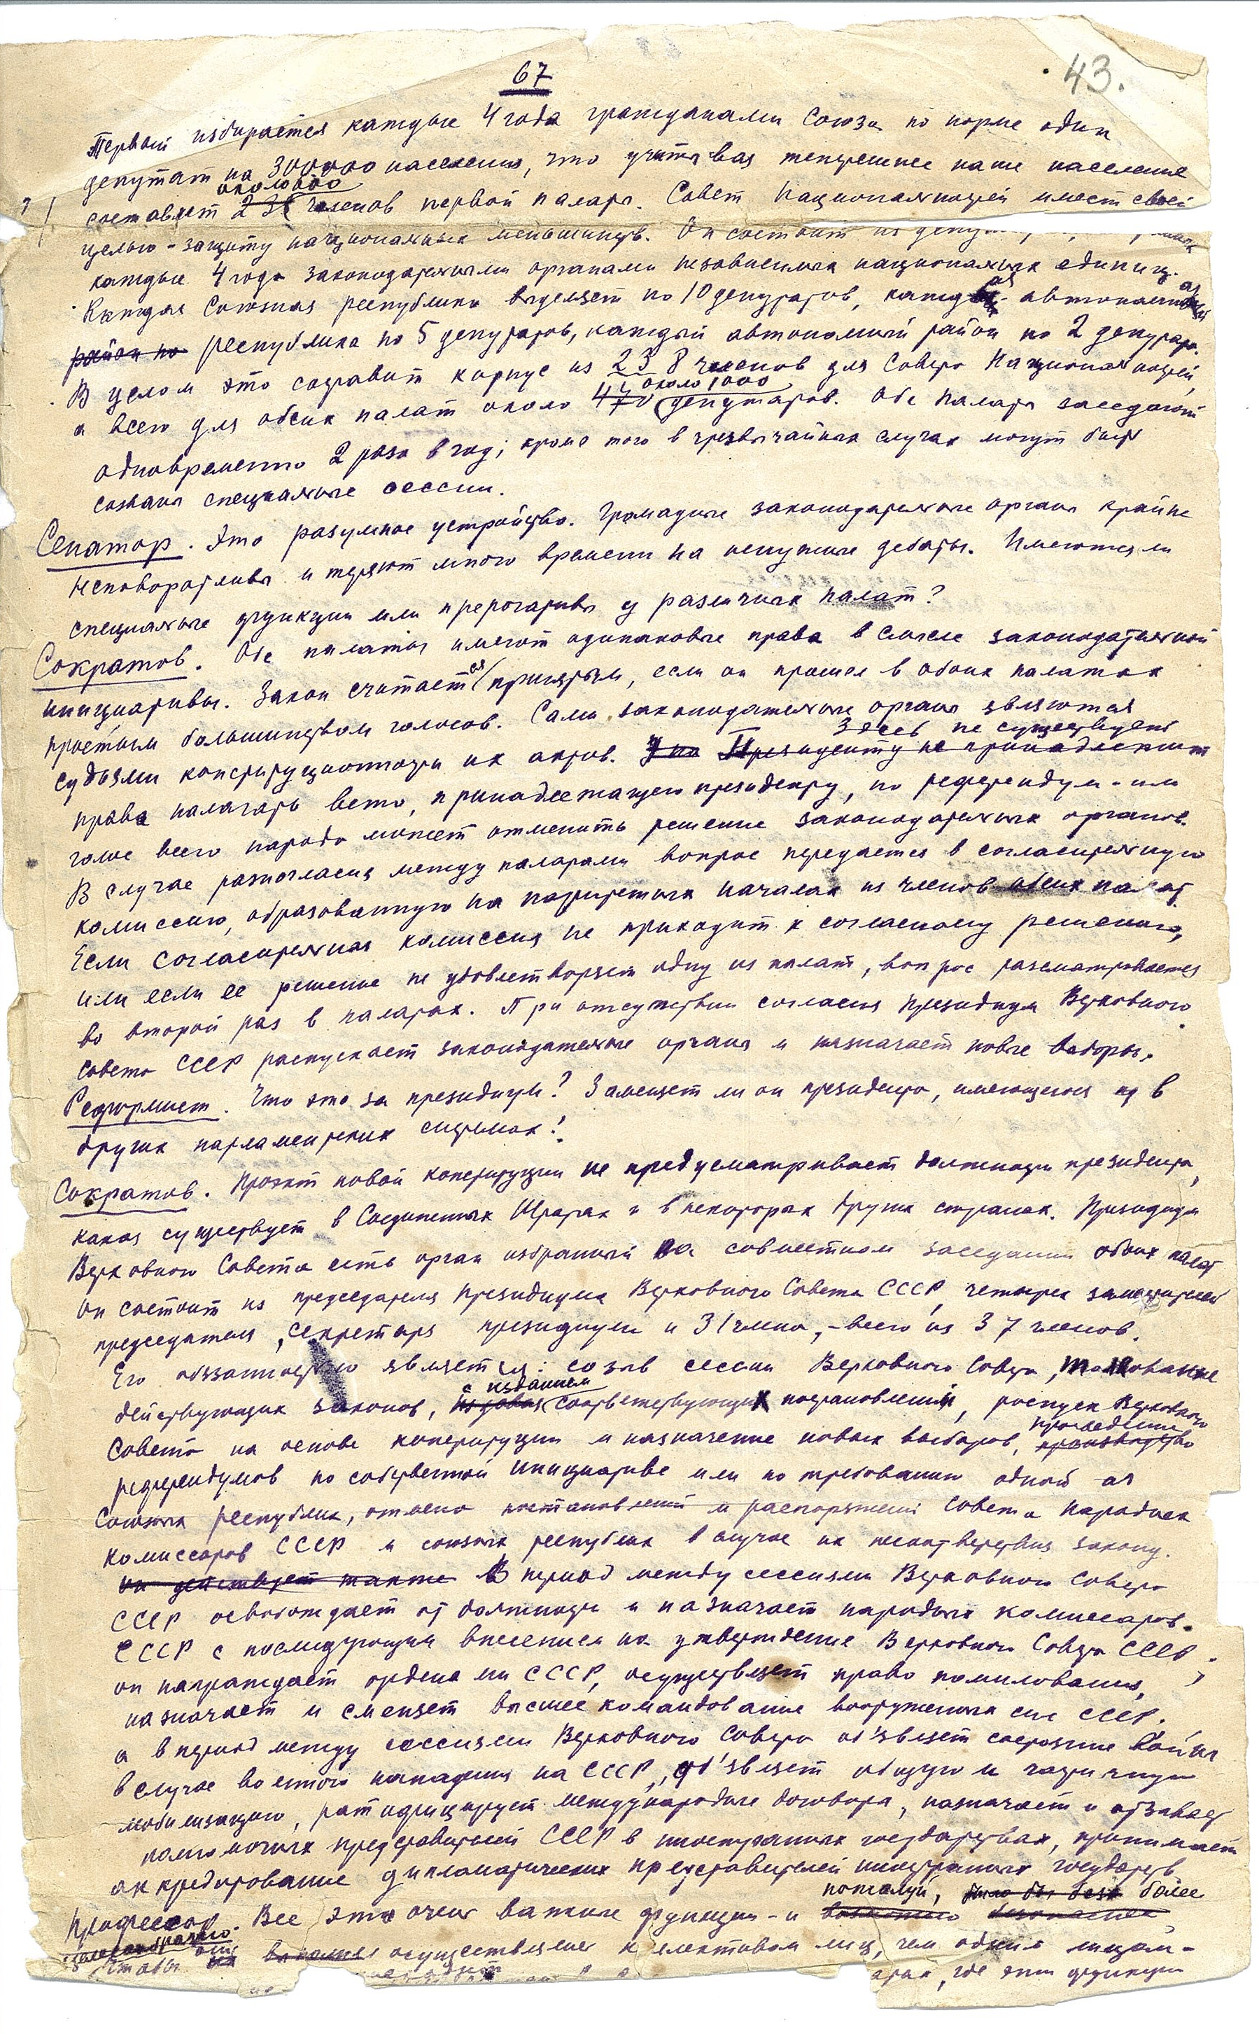 67
43.
Первый избирается каждые 4 года гражданами Союза по норме один
депутат на 300000 населения, что учитывая теперешнее наше население
около 600
составляет членов первой палаты. Совет Национальностей имеет своей
целью - защиту национальных меньшинств. Он состоит из
каждые 4 года законодательными органами независимых национальных единиц.
Каждая Союзная республика выделяет по 10 депутатов, каждая автономная
район по республика по 5 депутатов, каждый автономный район по 2 депутата.
В целом это создавит корпус из 238 членов для Совета Национальностей,
около 1000
а всего для обеих палат около депутатов. Обе палаты заседают
одновременно 2 раза в год; кроме того в чрезвычайных случаях могут быть
созваны специальные сессии.
Сенатор. Это разумное устройство. Громадные законодательные органы крайне
неповоротливы и теряют много времени на ненужные дебаты. Имеются ли
специальные функции или прерогативы у различных палат?
Сократов. Обе палаты имеют одинаковые права в смысле законодательной
инициативы. Закон считается принятым, если он прошел в обоих палатах
простым большинством голосов. Сами законодательные органы являются
Здесь не существует
судьями конституционности их актов. Президенту не принадлежит
права налагать вето, принадлежащего президенту, но референдум - или
голос всего народа может отменить решение законодательных органов.
В случае разногласия между палатами вопрос передается в согласительную
комиссию, образованную на паритетных началах из членов обеих палат
Если согласительная комиссия не приходит к согласному решению,
или если ее решение не удовлетворяет одну из палат, вопрос рассматривается
во второй раз в палатах. При отсутствии согласия президиум Верховного
Совета СССР распускает законодательные органы и назначает новые выборы.
Реформист. Что это за президиум? Замещает ли он президента, имеющегося в
других парламентских системах?
Сократов. Проэкт новой конституции не предусматривает должности президента,
какая существует в Соединенных Штатах и в некоторых других странах. Президиум
Верховного Совета есть орган избранный на совместном заседании обоих палат
Он состоит из председателя президиума Верховного Совета СССР, четырех заместителей
председателя, секретаря президиума и 31 члена, - всего из 37 членов.
Его обязанностью является: созыв сессии Верховного Совета, толкование
с изданием
действующих законов, соответствующих постановлений, роспуск Верховного
проведение
Совета на основе конституции и назначение новых выборов, производство
референдумов по собственной инициативе или по требованию одной из
Союзных республик, отмена постановлений и распоряжений Совета Народных
комиссаров СССР и союзных республик в случае их несоответствия закону.
он действует также В период между сессиями Верховного Совета
СССР освобождает от должности и назначает народных комиссаров
СССР с последующим внесением на утверждение Верховного Совета СССР,
он награждает орденами СССР, осуществляет право помилования,
назначает и сменяет высшее командование вооруженных сил СССР,
а в период между сессиями Верховного Совета об'являет состояние войны
в случае военного нападения на СССР, об'являет общую и частичную
мобилизацию, ратифицирует международные договора, назначает и отзывает
полномочных представителей СССР в иностранных государствах, принимает
аккредитование дипломатических представителей иностранных государств
пожалуй, было бы более
Профессор. Все это очень важные функции - и
целесообразно
чтобы они осуществлялись коллективом лиц, чем одним лицом -
где эти функции